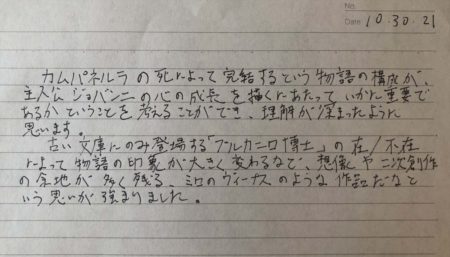 No.
Date 10.30.21
カムパネルラの死によって完結するという物語の構成が、
主人公ジョバンニの心の成長を描くにあたっていかに重要で
あるかということを考えることができ、理解が深まったように
思います。
古い文庫にのみ登場する「ブルカニロ博士」の在/不在
によって物語の印象が大きく変わるなど、想像や二次創作
の余地が多く残る、ミロのヴィーナスのような作品だなと
いう思いが強まりました。